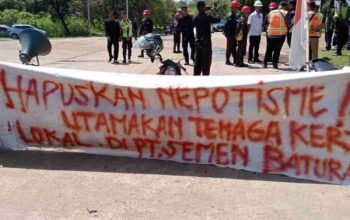 HAPUSKAN NEPOTISME !
UTAMAKAN TENAGA KERJ
LOKAL. DI PT. SEMEN BATURA